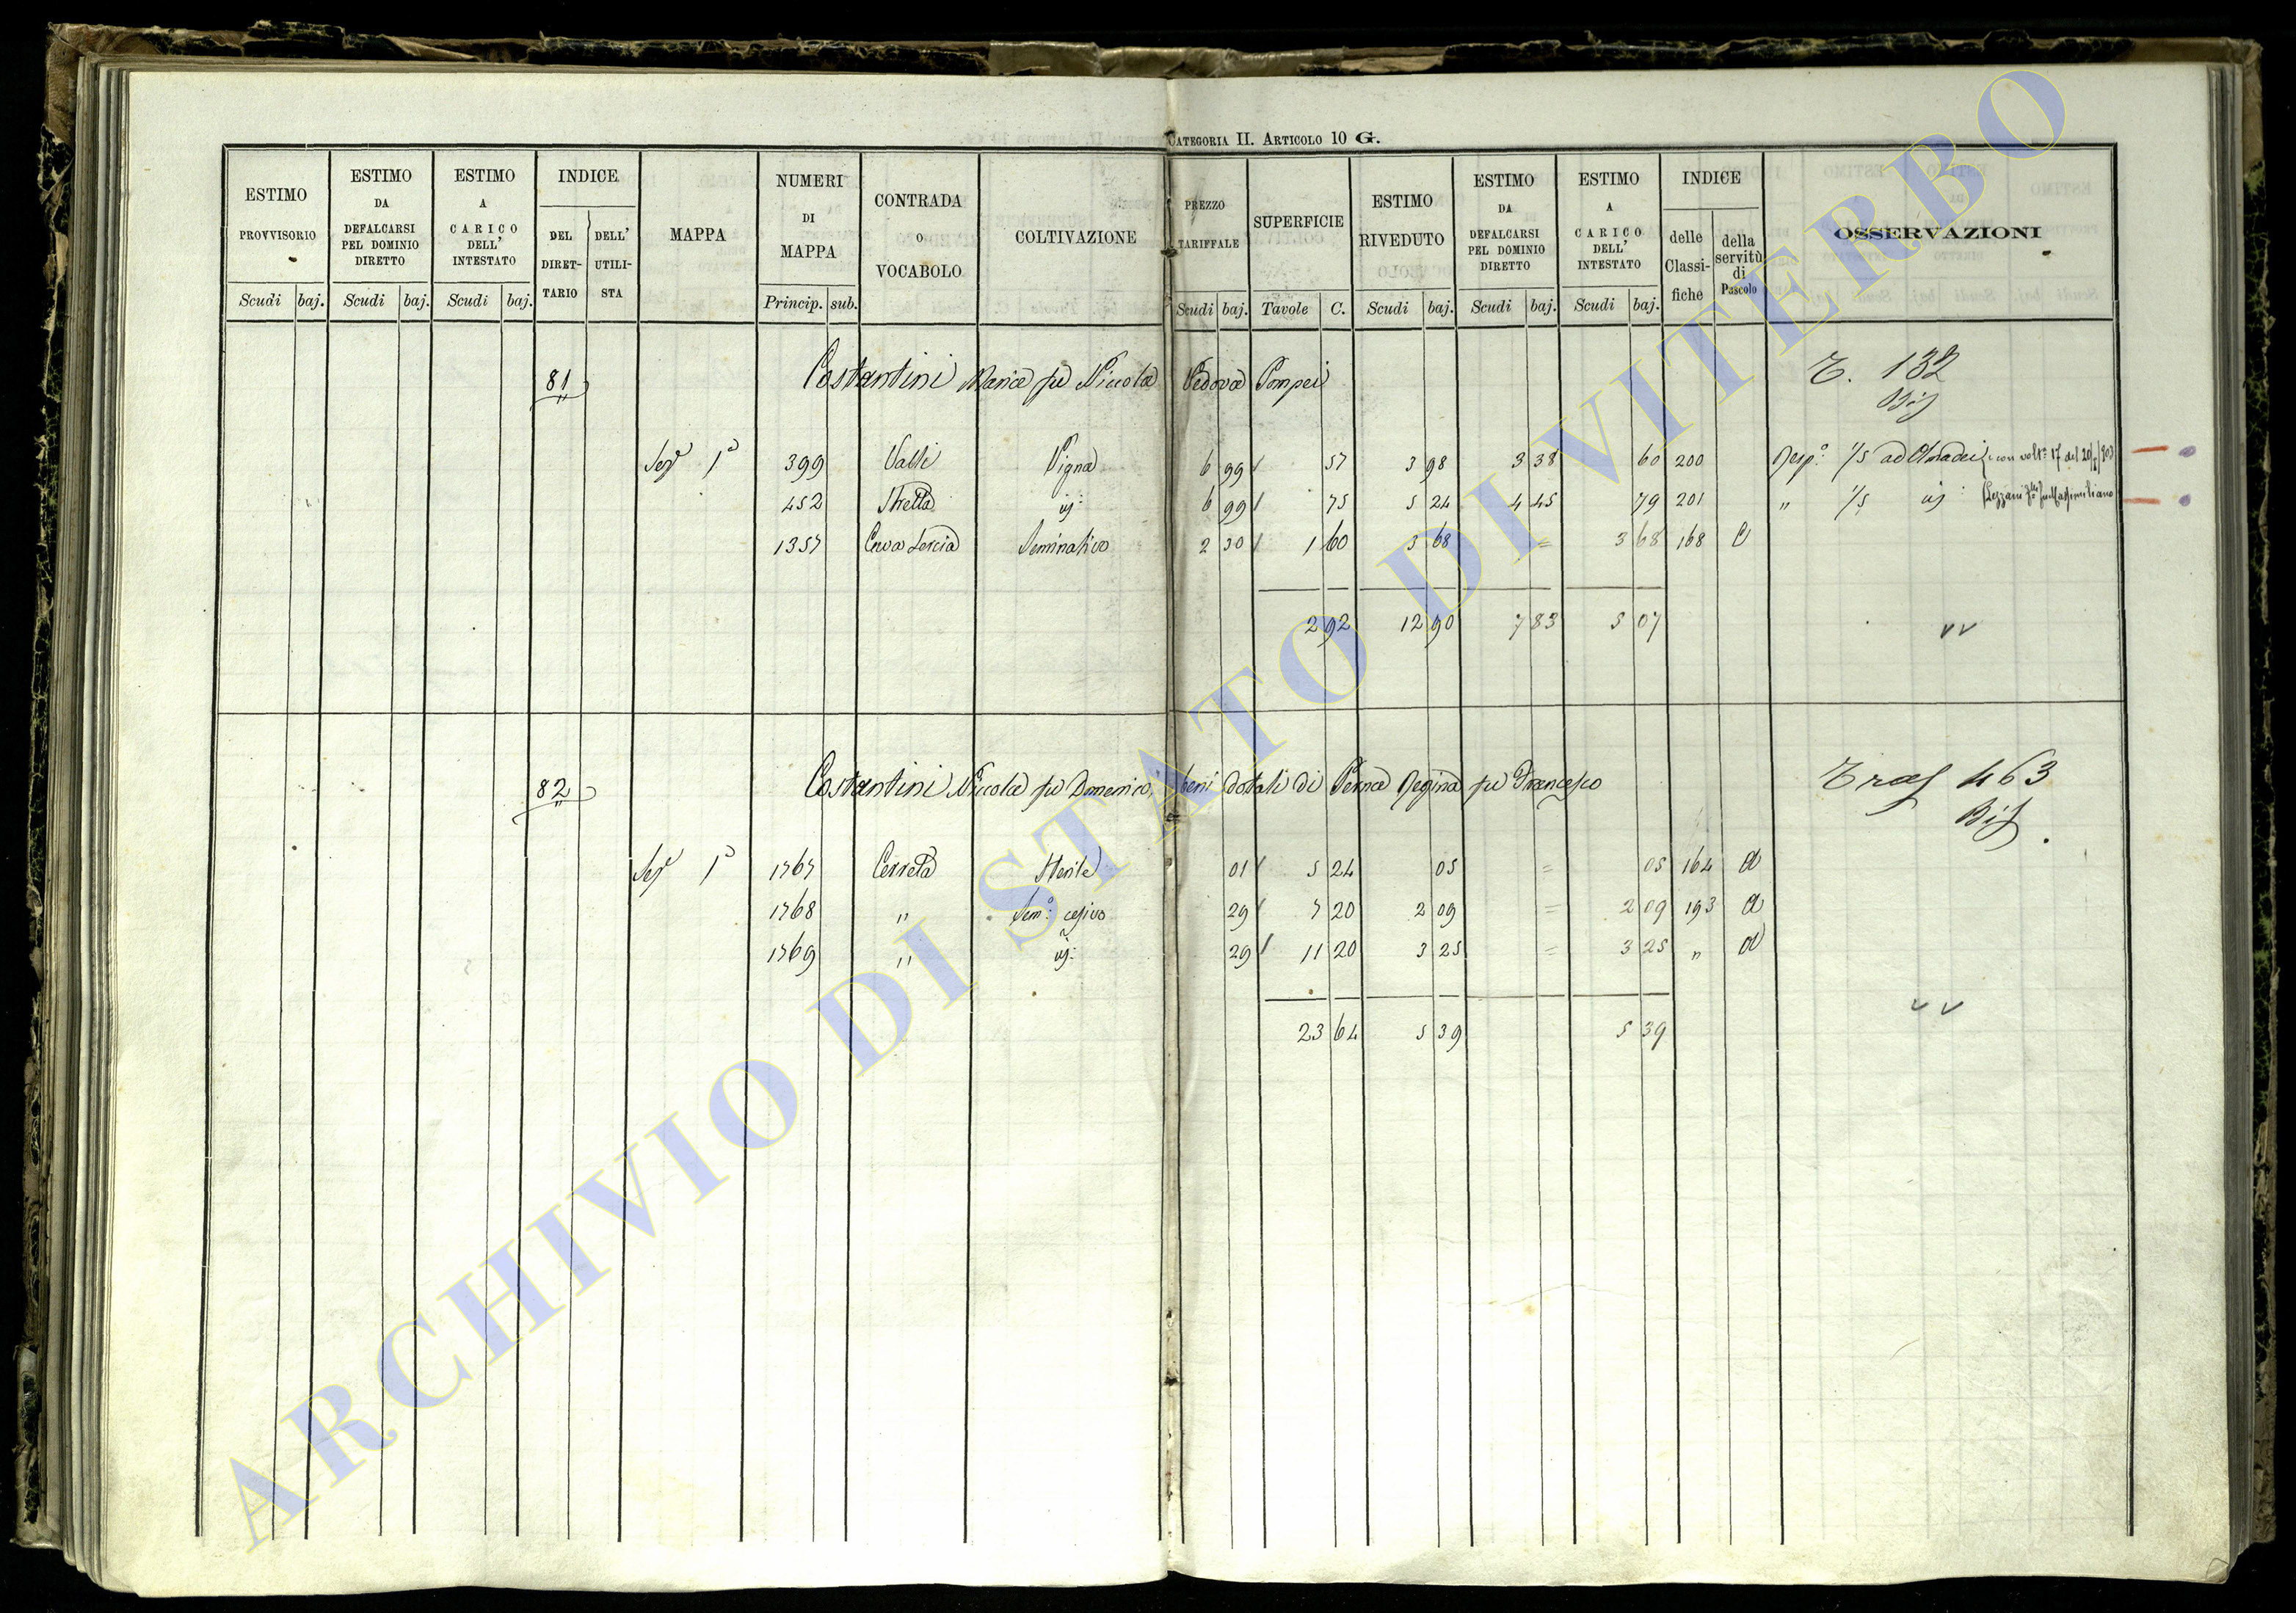 CATEGORIA II. ARTICOLO 10 G.
ESTIMO PROVVISORIO Scudi baj.
ESTIMO DA DEFALCARSI PEL DOMINIO DIRETTO Scudi baj.
ESTIMO A CARICO DELL' INTESTATO Scudi baj.
INDICE DEL DIRET-TARIO DELL' UTILI-STA
MAPPA
NUMERI DI MAPPA Princip. sub.
CONTRADA O VOCABOLO
COLTIVAZIONE
PREZZO TARIFFALE Scudi baj.
SUPERFICIE Tavole C.
ESTIMO RIVEDUTO Scudi baj.
ESTIMO DA DEFALCARSI PEL DOMINIO DIRETTO Scudi baj.
ESTIMO A CARICO DELL' INTESTATO Scudi baj.
INDICE delle Classi-fiche della servitù di Pascolo
OSSERVAZIONI
81 Costantini Maria fu Niccola Vedova Pompei T. 132
Bis
Sez. 1a 399 Valli Vigna 6 99 57 3 98 3 38 60 200 Resp. 1/5 ad Amadei con volt. 17 del
452 Stretta id: 6 99 75 5 24 4 45 79 201 " 1/5 id: Massimiliano
1357 Seminativo 2 30 1 60 3 68 = 3 68 168 C
2 92 12 90 7 83 5 07
vv
82 Costantini Nicola fu Domenico, beni dotali di Perna Regina fu Francesco Tras 463
Bis.
Sez. 1a 1767 Cerreta Sterile 01 5 24 05 = 05 164 A
1768 " Sem: cesivo 29 7 20 2 09 = 2 09 193 A
1769 " id: 29 11 20 3 25 = 3 25 " A
23 64 5 39 5 39
v v
ARCHIVIO DI STATO DI VITERBO